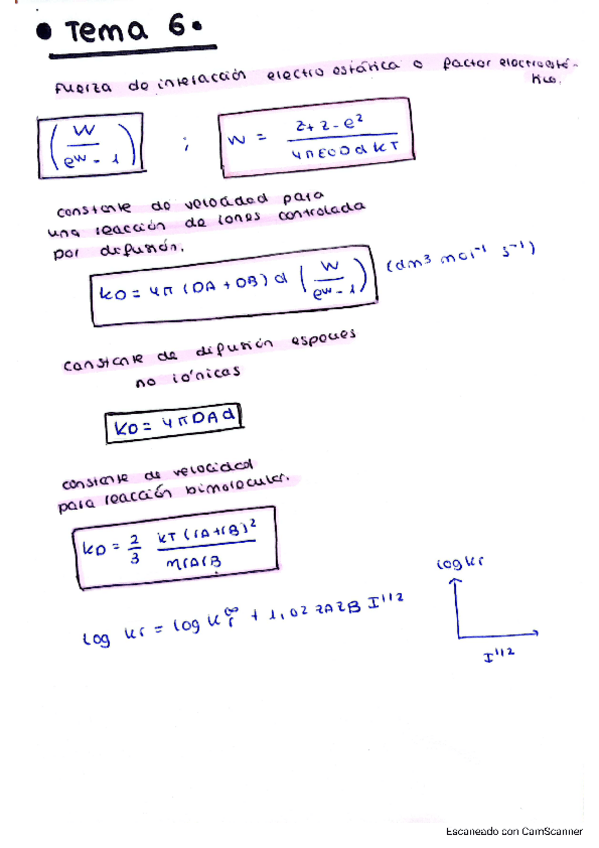 • Tema 6.
Fuerza de interacción electro estática o factor electrostá-
tico.
(W / e^w - 1) ; W = z+ z- e² / 4πεε0 d kT
constante de velocidad para
una reacción de iones controlada
por difusión.
kD = 4π (DA + DB) d (W / e^w - 1) (dm³ mol⁻¹ s⁻¹)
constante de difusión especies
no iónicas
kD = 4πDAd
constante de velocidad
para reacción bimolecular.
kD = 2/3 kT(rA+rB)² / ηrArB
log kr = log kr^∞ + 1,02 zAzB I^1/2
log kr
I^1/2
Escaneado con CamScanner